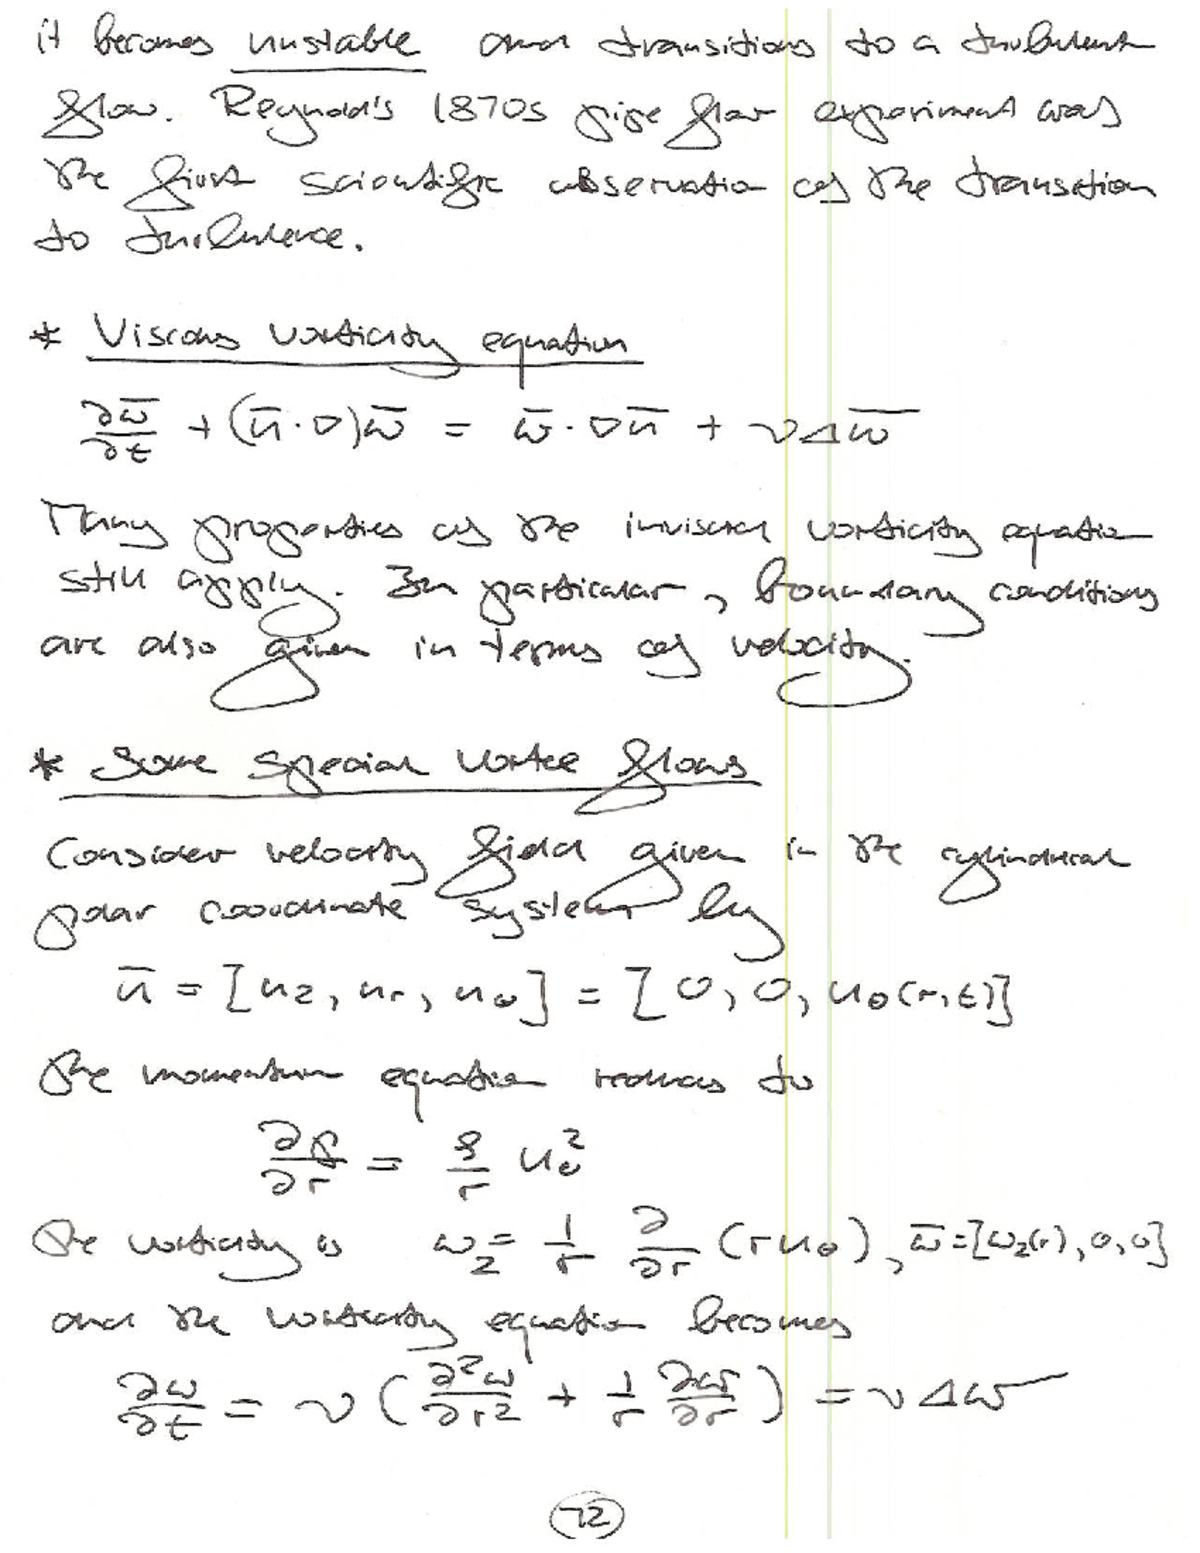 it becomes unstable and transitions to a turbulent
flow. Reynold's 1870s pipe flow experiment was
the first scientific observation of the transition
to turbulence.
* Viscous vorticity equation
∂ω̄/∂t + (ū·∇)ω̄ = ω̄·∇ū + νΔω̄
Many properties of the inviscid vorticity equation
still apply. In particular, boundary conditions
are also given in terms of velocity.
* Some special vortex flows
Consider velocity field given in the cylindrical
polar coordinate system by
ū = [u_z, u_r, u_θ] = [0, 0, u_θ(r,t)]
The momentum equation reduces to
∂p/∂r = ρ/r u_θ²
The vorticity is ω_z = 1/r ∂/∂r (r u_θ), ω̄ = [ω_z(r), 0, 0]
and the vorticity equation becomes
∂ω/∂t = ν (∂²ω/∂r² + 1/r ∂ω/∂r) = νΔω
72